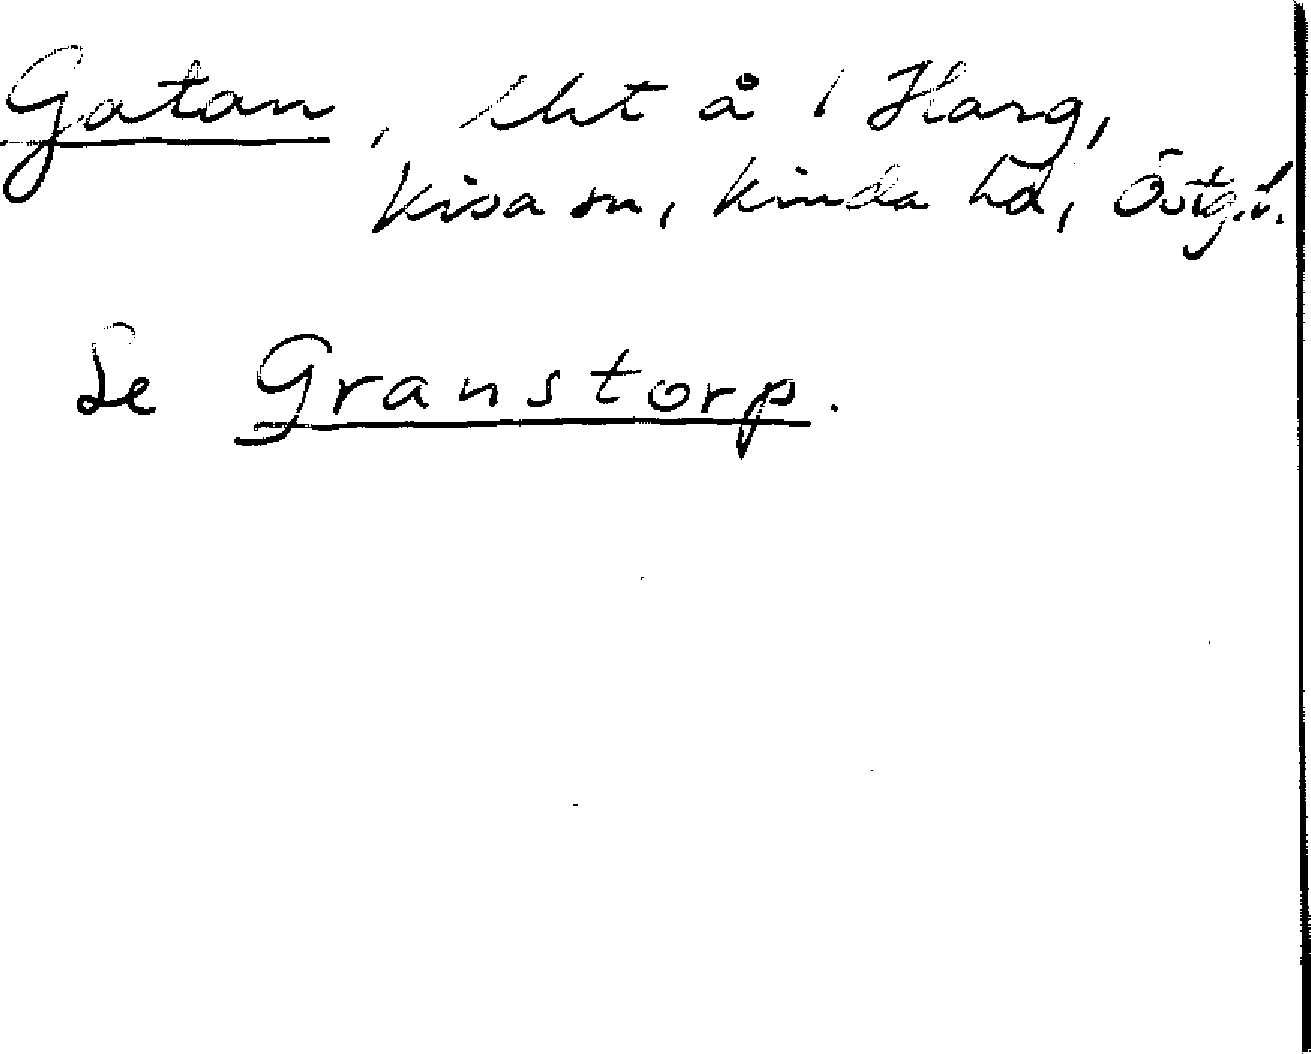 Gatan, lht å 1 Harg,
Kisa sn, Kinda hd, Östg.l.
Se Granstorp.